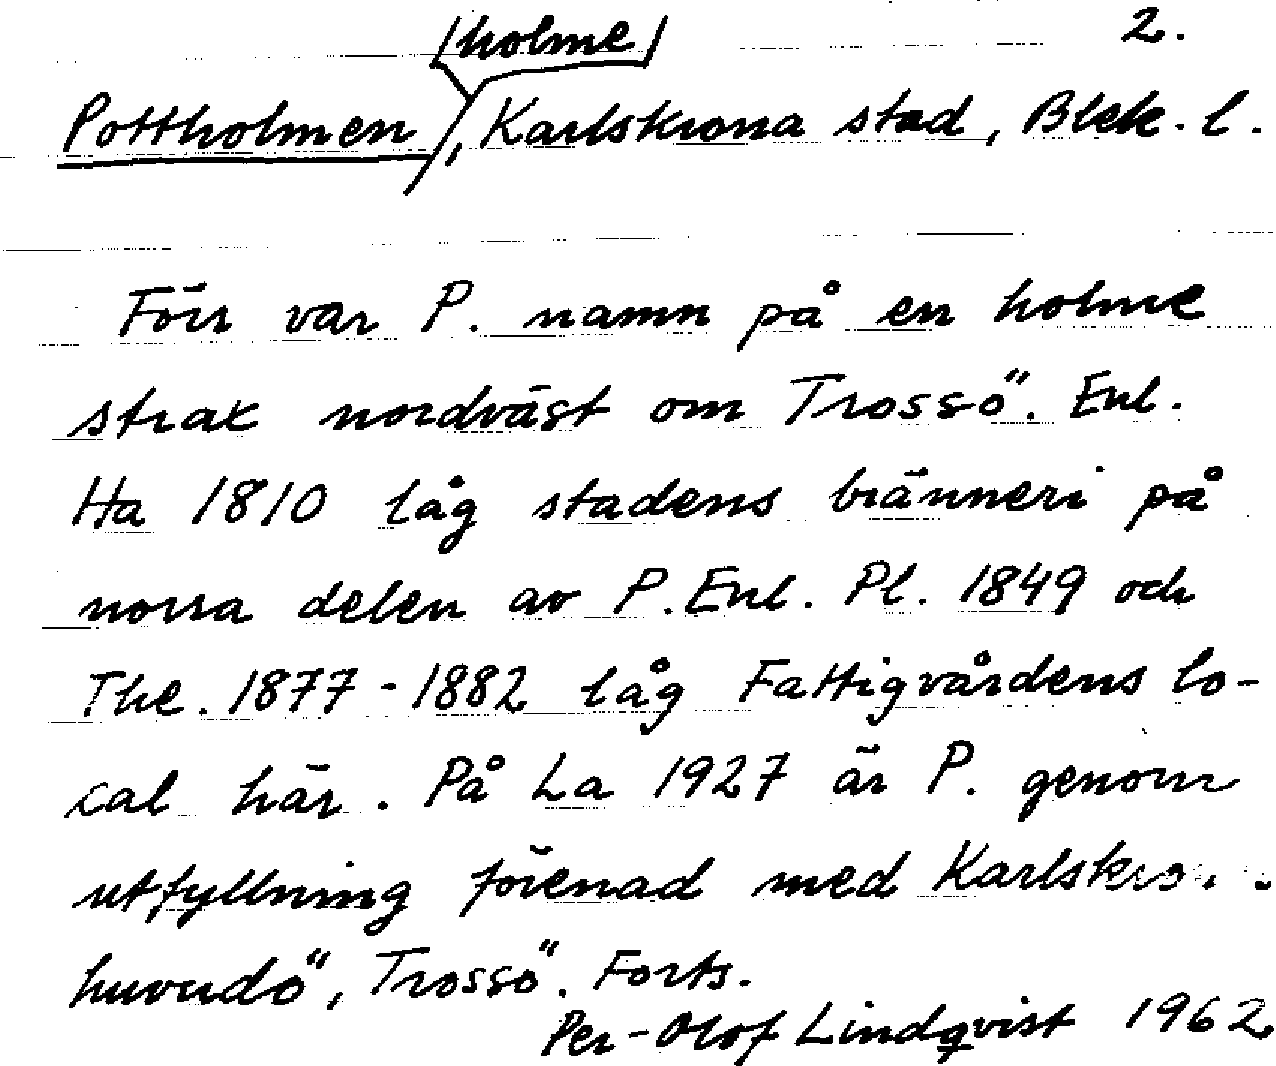 /holme/ 2.
Pottholmen, Karlskrona stad, Blek. l.
Förr var P. namn på en holme
strax nordväst om Trossö. Enl.
Ha 1810 låg stadens bränneri på
norra delen av P. Enl. Pl. 1849 och
The. 1877-1882 låg Fattigvårdens lo-
cal här. På La 1927 är P. genom
utfyllning förenad med
huvudö, Trossö. Forts.
Per-Olof Lindqvist 1962